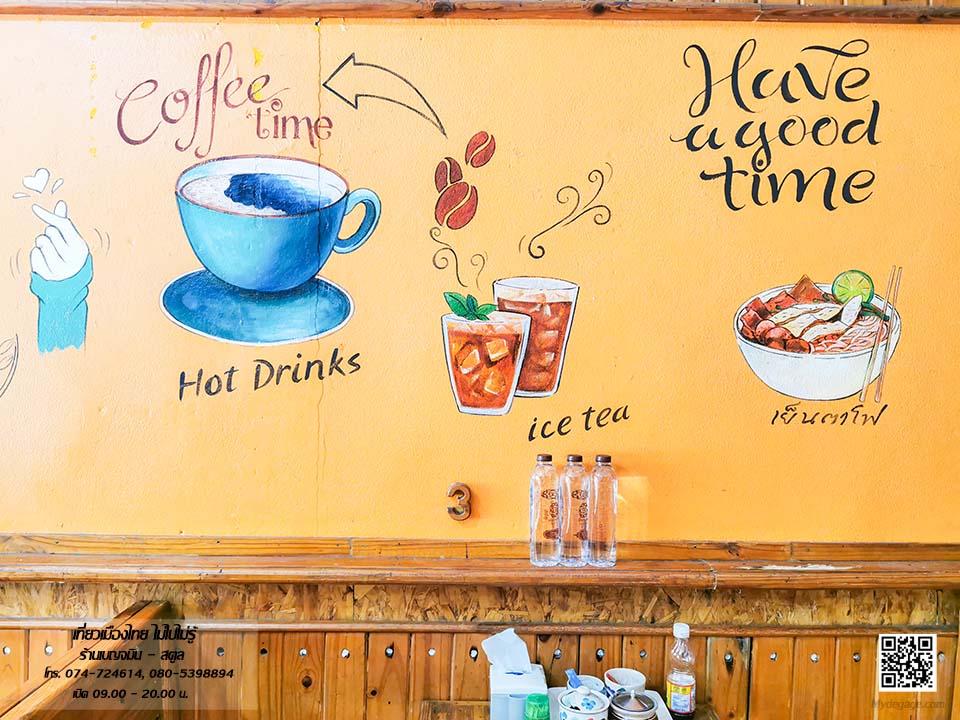 Coffee
time
Have
a good
time
Hot Drinks
ice tea
เย็นตาโฟ
3
เที่ยวเมืองไทย ไม่ไปไม่รู้
ร้านเบญจมิน - สตูล
โทร. 074-724614, 080-5398894
เปิด 09.00 - 20.00 น.
Mydegage.com